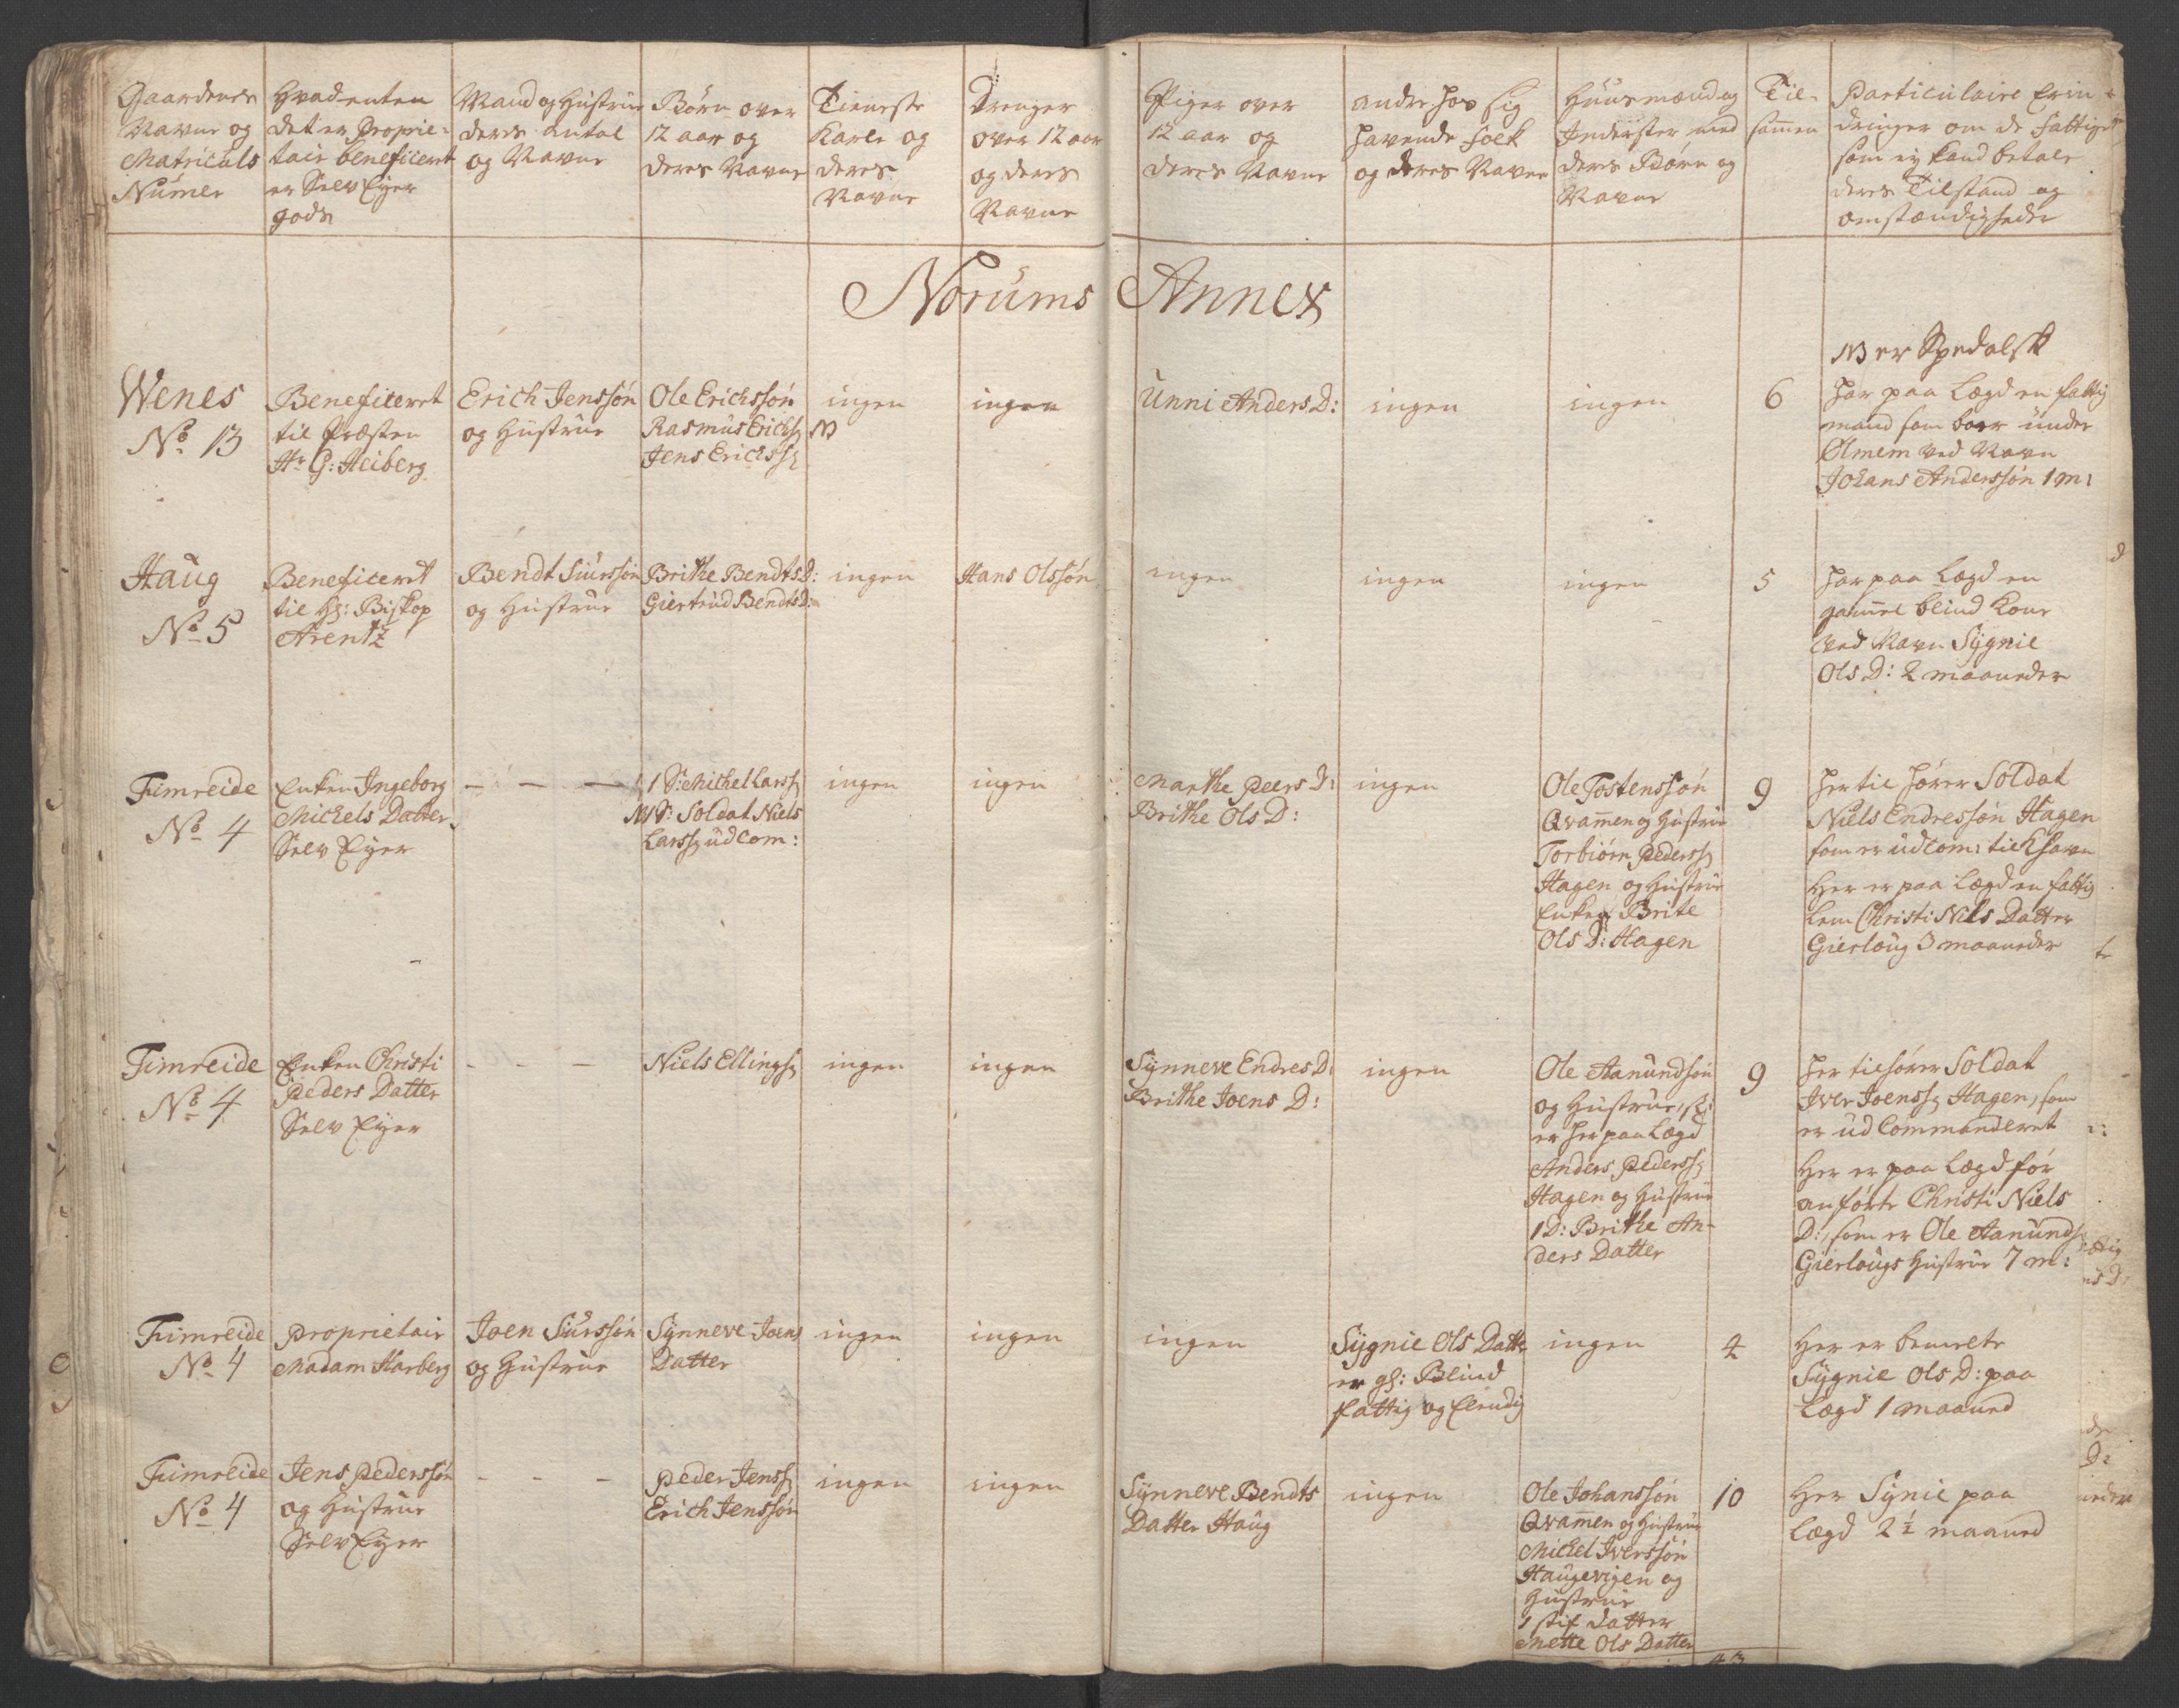 Gaardenes
Navne og
Matriculs
Numer
Hvad enten
det er Proprie-
tair beneficeret
er Selv Eyer
gods
Mand og Hustrue
deres Antal
og Navne
Børn over
12 aar og
deres Navne
Tieneste
Karle og
deres
Navne
Drenger
over 12 aar
og deres
Navne
Piger over
12 aar og
deres Navne
andre hos sig
havende folk
og deres Navne
Huusmænd og
Inderster med
deres Børn og
Navne
Til-
sam̄en
Particulaire Erin-
dringer om de fattige
som ey kand betale
deres Tilstand og
omstændigheder
Norums Annex
Wenes
No 13
Beneficeret
til Præsten
Hr G: Heiberg
Erich Jenssøn
og Hustrue
Ole Erichssøn
Rasmus Erichss
Jens Erichss
ingen
ingen
Unni Anders D:
ingen
ingen
6
er Spedalsk
har paa Lægd en fattig
mand som boer under
Ølmem ved Navn
Johans Anderssøn 1 m:
Haug
No 5
Beneficeret
til Hr: Biskop
Arentz
Bendt Siurssøn
og Hustrue
Brithe Bendts D:
Giertrud Bendts D:
ingen
Hans Olssøn
ingen
ingen
ingen
5
har paa Lægd en
gam̄el blind Kone
ved Navn Sygnie
Ols D: 2 maaneder
Fimreide
No 4
Enken Ingeborg
Michels Datter
Selv Eyer
- - -
1 S: Michel Larss
Soldat Niels
Larss ud Com:
ingen
ingen
Marthe Peers D:
Brithe Ols D:
ingen
Ole Tostenssøn
Qvam̄en og Hustrue
Torbiørn Pederss
Hagen og Hustrue
Enken Brite
Ols D: Hagen
9
her til hører Soldat
Niels Endressøn Hagen
som er ud Com: til Khavn
Her er paa Lægd en fattig
Lem Christi Nils Datter
Gierløug 3 maaneder
Fimreide
No 4
Enken Christi
Peders Datter
Selv Eyer
- - -
Niels Ellings
ingen
ingen
Synneve Endres D:
Brithe Joens D:
ingen
Ole Aanundsøn
og Hustrue,
er her paa Lægd
Anders Pederss
Hagen og Hustrue
1 D: Brithe An-
ders Datter
9
her til hører Soldat
Iver Joenss Hagen, som
er ud Commanderet
Her er paa Lægd før
anførte Christi Niels
D:, som er Ole Aanunds
Gierløugs Hustrue 7 m:
Fimreide
No 4
Proprietair
Madam Harberg
Joen Siurssøn
og Hustrue
Synneve Joens
Datter
ingen
ingen
ingen
Sygnie Ols Datter
er gl: Blind
fattig og Elendig
ingen
4
Her er bemelte
Sygnie Ols D: paa
Lægd 1 maaned
Fimreide
No 4
Jens Pederssøn
og Hustrue
Selv Eyer
- - -
Peder Jenss
Erich Jenssøn
ingen
ingen
Synneve Bendts
Datter Haug
ingen
Ole Johanssøn
Qvam̄en og Hustrue
Michel Iverssøn
Haugevigen og
Hustrue
1 stif Datter
Mette Ols Datter
10
Her Synie paa
Lægd 2 ½ maaned
43